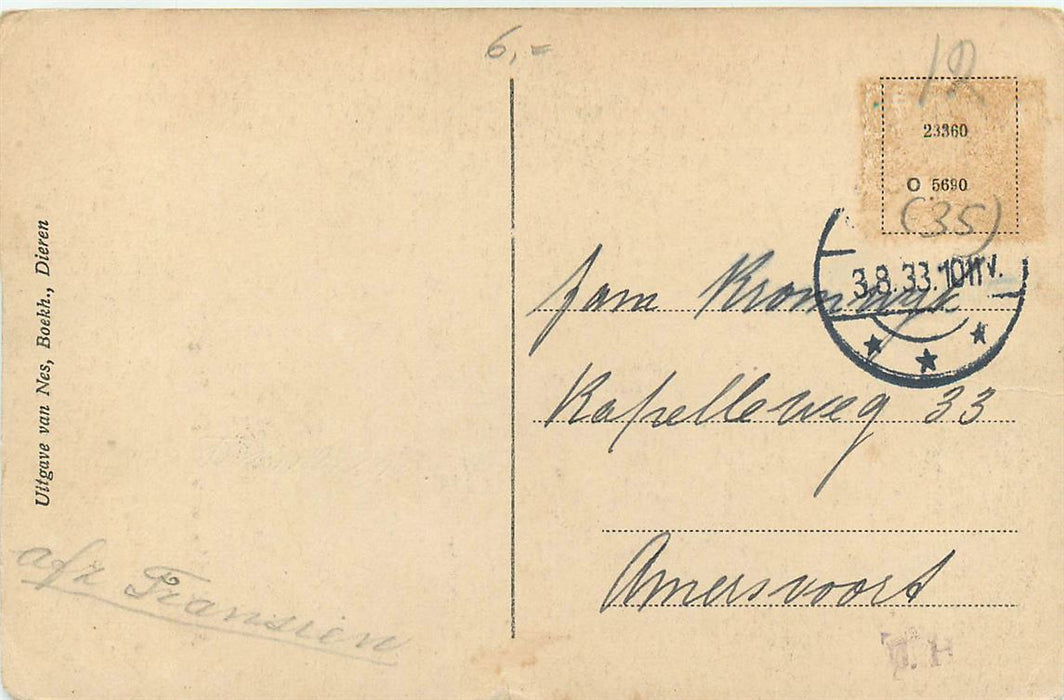 6,=
12
23360
O 5690
(35)
3.8.33.10
fam
Kapelleweg 33
Amersvoort
Uitgave van Nes, Boekh., Dieren
afz Fransien